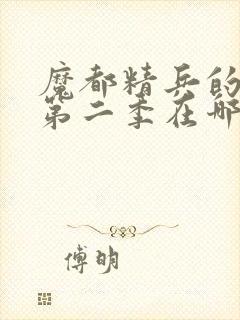 魔都精兵的
第二季在哪
傅明